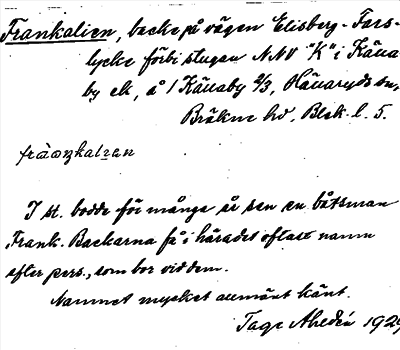 Frankalien, backe på vägen Elisberg-Fors-
lycke förbi stugan N.N.V "K" i Källa
by ek, å 1 Källaby 2/3, Hällaryds sn,
Bräkne hd, Blek. l. 5.
I st. bodde för många år sen en båtsman
Frank. Backarna få i häradet oftast namn
efter pers., som bor vid dem.
Namnet mycket allmänt känt.
Tage Ahldén 1929